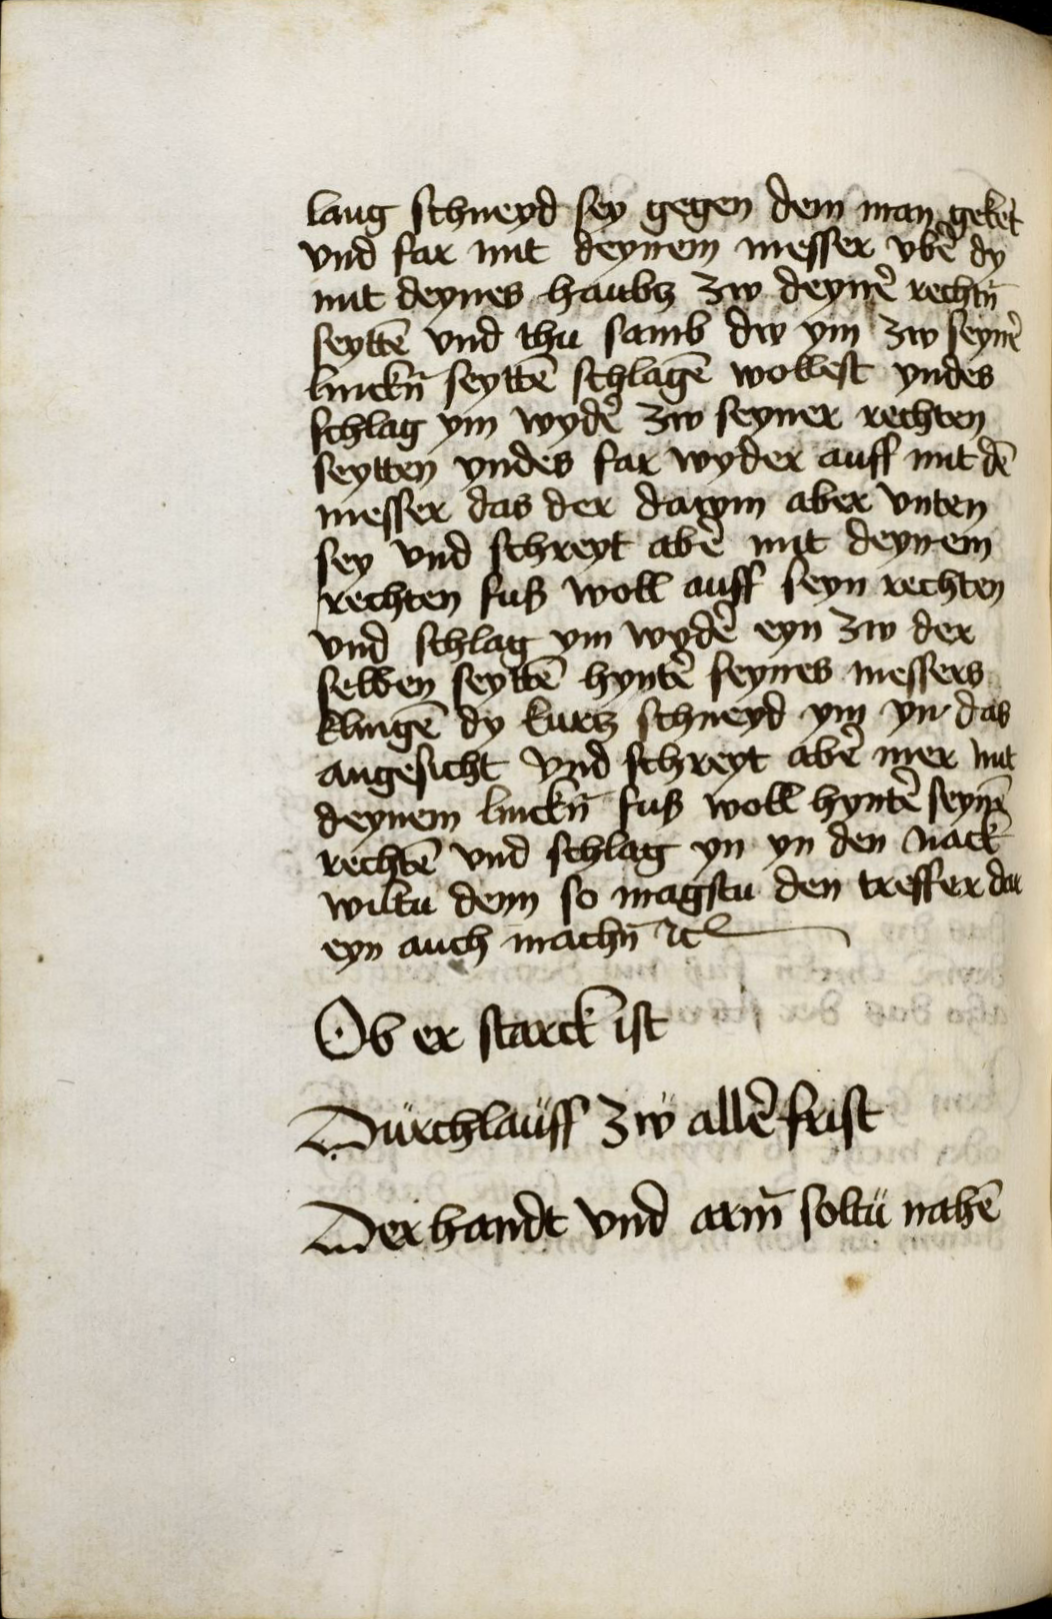 lang schneyd sey gegen dem man geket
vnd far mit deynem messer vbe᷑ dy
mit deynes haubtz zw deyne᷑ rechtn̄
seyttē vnd thu samb dw ym zw seyne᷑
linckn̄ seyttē schlagē wollest yndes
schlag ym wyde᷑ zw seyner rechten
seytten yndes far wyder auff mit dē
messer das der dawm aber vnten
sey vnd schreyt abe᷑ mit deynem
rechten fuß woll auff seyn rechten
vnd schlag ym wyde᷑ eyn zw der
selben seyttē hynte᷑ seynes messers
klingē dy kurtz schneyd ym yn das
angesicht vnd schreyt abe᷑ mer mit
deynem linckn̄ fuß woll hynte᷑ seynē
rechtē vnd schlag yn yn den nack̄
wiltu denn so magstu den treffer dar
eyn auch machn̄ ⁊c
Ob er starck ist
Dürchlaüff zẅ alle᷑ frist
Der handt vnd arm̄ soltü nahē